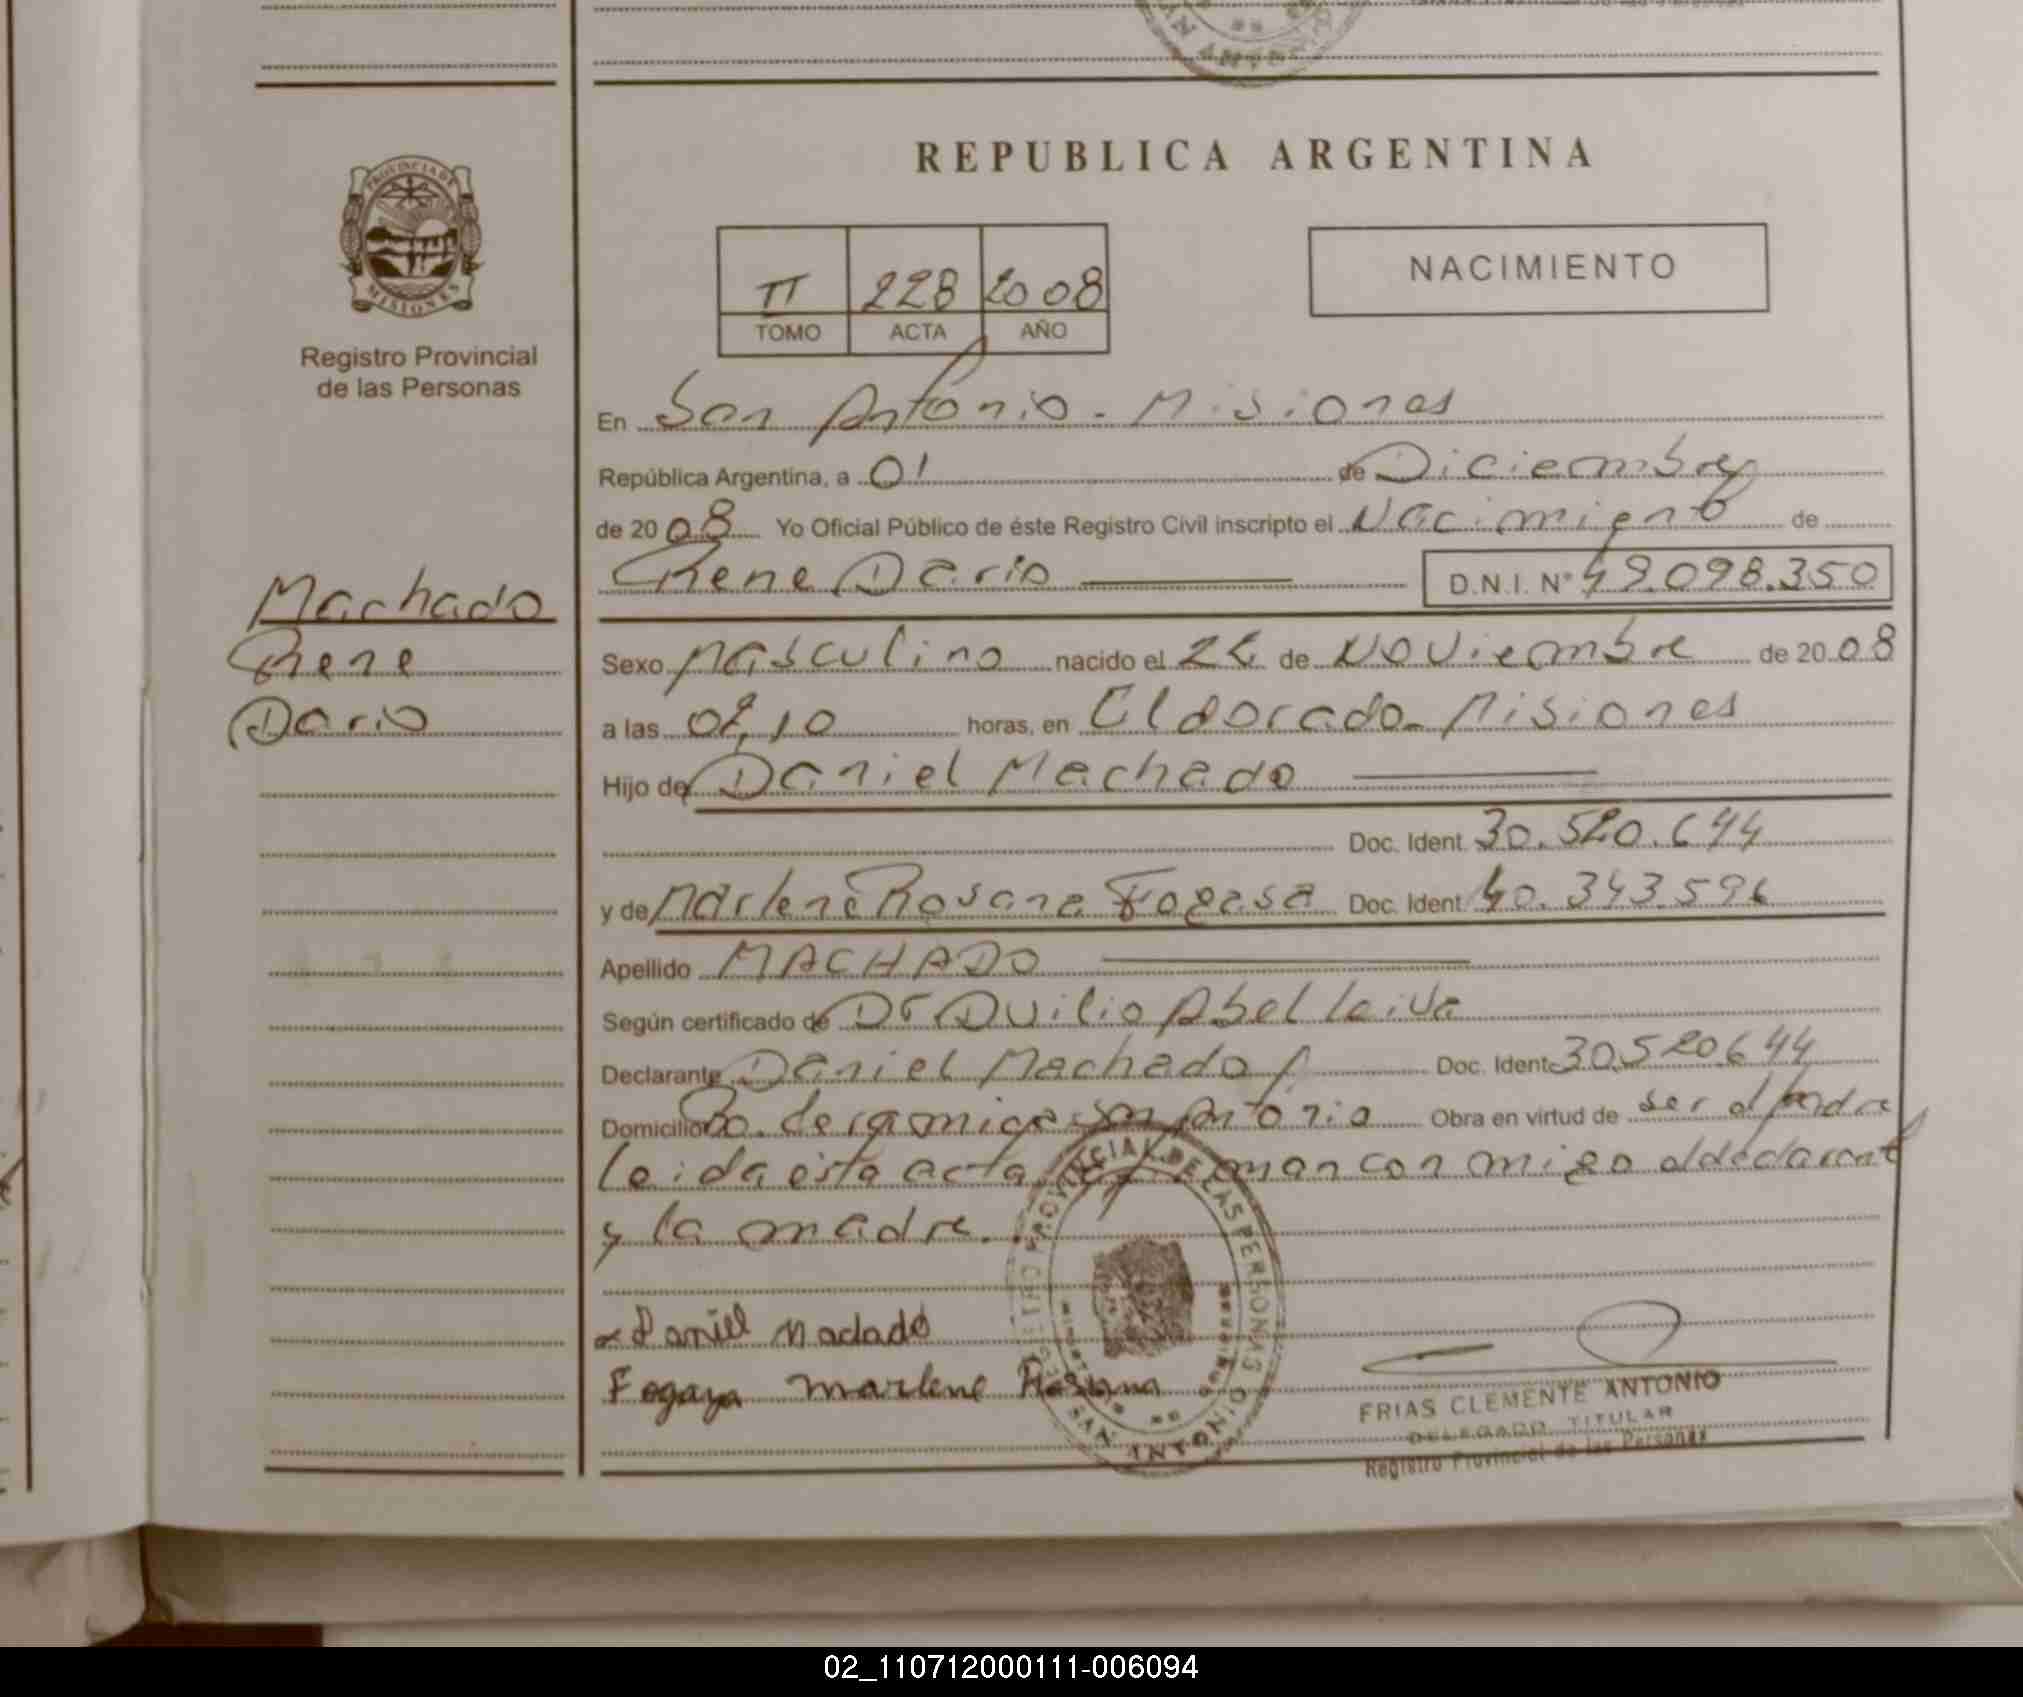 REPUBLICA ARGENTINA
PROVINCIA DE
MISIONES
Registro Provincial
de las Personas
II 228 2008
TOMO ACTA AÑO
NACIMIENTO
Machado
Rene
Dario
En San Antonio - Misiones
República Argentina, a 01 de Diciembre
de 2008 Yo Oficial Público de éste Registro Civil inscripto el Nacimiento de
Rene Dario D.N.I. N° 49.098.350
Sexo Masculino nacido el de Noviembre de 2008
a las horas, en Eldorado - Misiones
Hijo de Daniel Machado
Doc. Ident. 30.520.644
y de Marlene Rosana Fogasa Doc. Ident. 40.343.596
Apellido MACHADO
Según certificado de Dr Duilio Abel Leiva
Declarante Daniel Machado Doc. Ident. 30.520.644
Domicilio San Antonio Obra en virtud de ser el padre
Leida esta acta la firman con migo el declarante
y la madre.
Daniel Machado
Fogaza Marlene Rosana
REGISTRO PROVINCIAL DE LAS PERSONAS
SAN ANTONIO
FRIAS CLEMENTE ANTONIO
DELEGADO TITULAR
Registro Provincial de las Personas
02_110712000111-006094